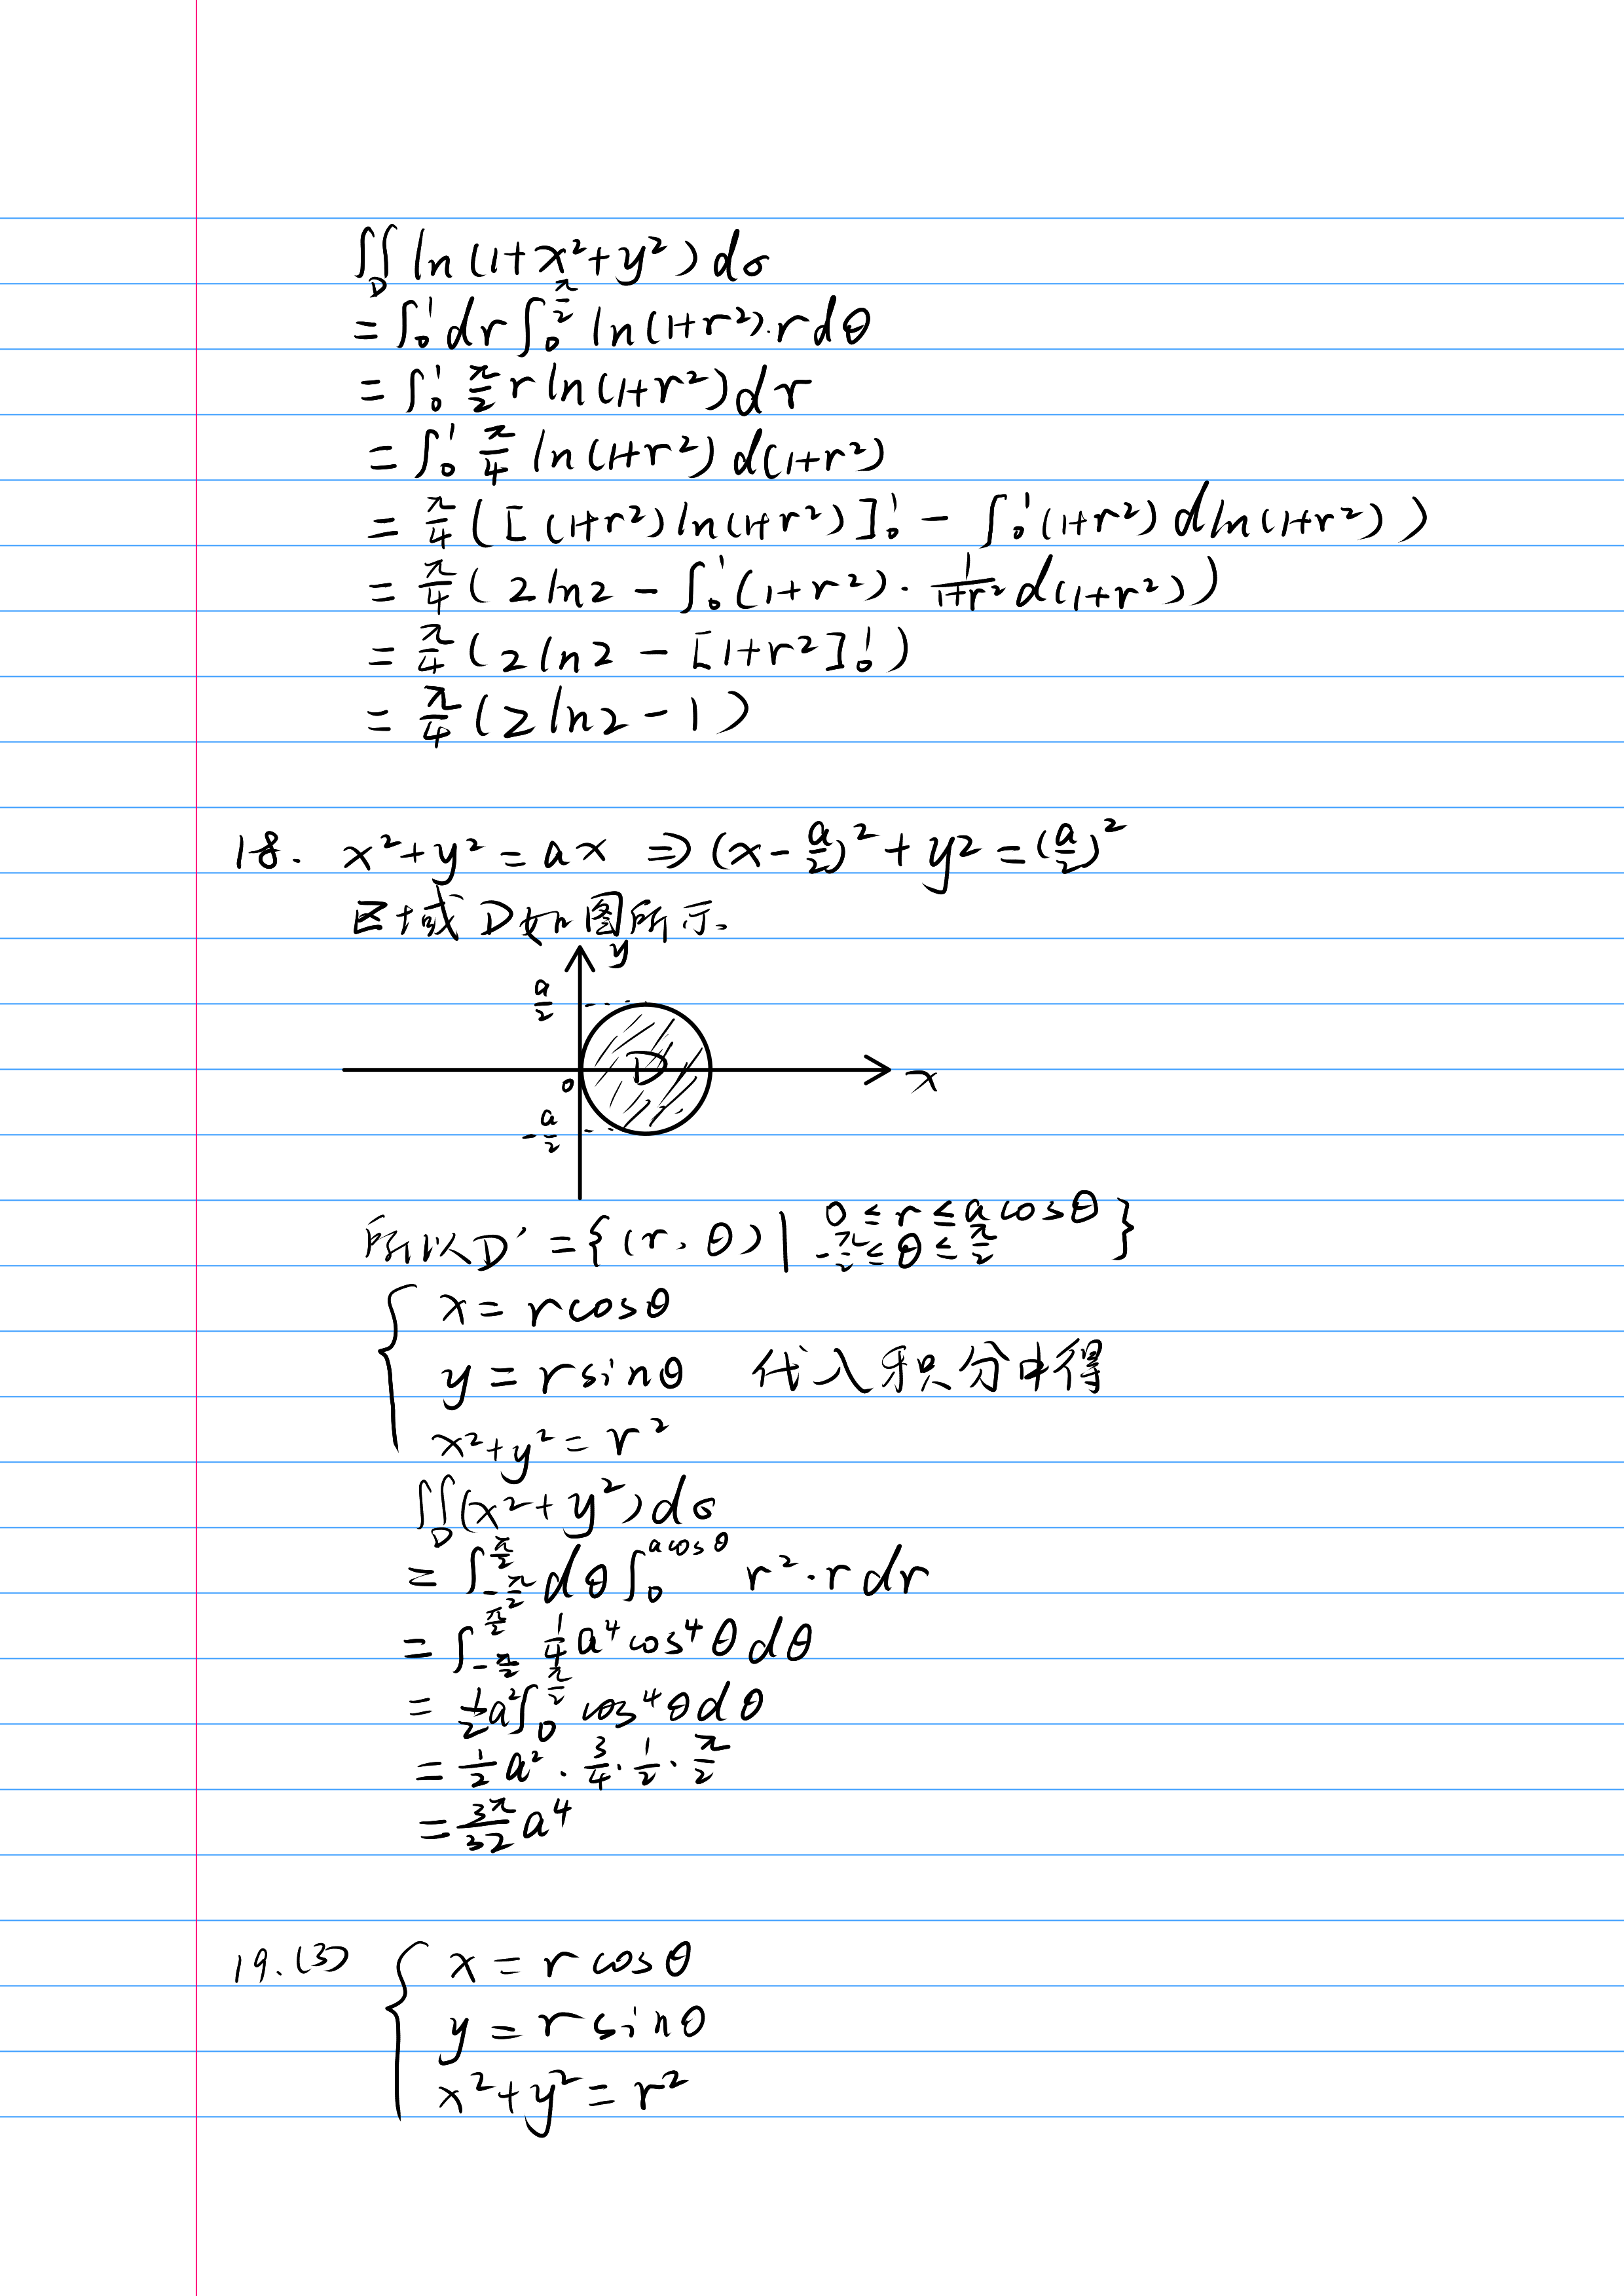 ∬_D ln(1+x²+y²)dσ
= ∫₀¹ dr ∫₀^{π/2} ln(1+r²)·r dθ
= ∫₀¹ π/2 r ln(1+r²)dr
= ∫₀¹ π/4 ln(1+r²) d(1+r²)
= π/4 ([(1+r²)ln(1+r²)]₀¹ - ∫₀¹(1+r²) d ln(1+r²))
= π/4 (2ln2 - ∫₀¹(1+r²)·1/(1+r²) d(1+r²))
= π/4 (2ln2 - [1+r²]₀¹)
= π/4 (2ln2 - 1)
18. x²+y²=ax ⇒ (x-a/2)²+y²=(a/2)²
区域D如图所示.
y
a/2
D
0
x
-a/2
所以D'={(r,θ)| 0≤r≤acosθ
-π/2≤θ≤π/2}
{ x=rcosθ
y=rsinθ 代入积分中得
x²+y²=r²
∬_D(x²+y²)dσ
= ∫_{-π/2}^{π/2} dθ ∫₀^{acosθ} r²·r dr
= ∫_{-π/2}^{π/2} 1/4 a⁴cos⁴θdθ
= 1/2 a² ∫₀^{π/2} cos⁴θdθ
= 1/2 a²·3/4·1/2·π/2
= 3π/32 a⁴
19.(3) { x=rcosθ
y=rsinθ
x²+y²=r²